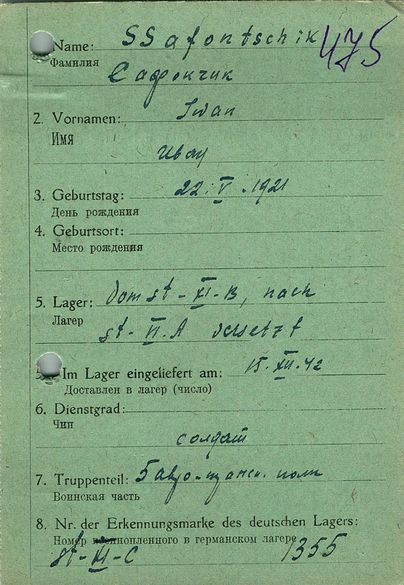 Name: SSafontschik 475
Фамилия Сафончик
2. Vornamen: Iwan
Имя
Иван
3. Geburtstag: 22. V. 1921
День рождения
4. Geburtsort:
Место рождения
5. Lager: Vom St-XI-B, nach
Лагерь
St-VI.A versetzt
Im Lager eingeliefert am: 15. XII. 42
Доставлен в лагер (число)
6. Dienstgrad:
Чин
солдат
7. Truppenteil: 5 авто-
Воинская часть
8. Nr. der Erkennungsmarke des deutschen Lagers:
Номер военнопленного в германском лагере
St-XI-C 1355